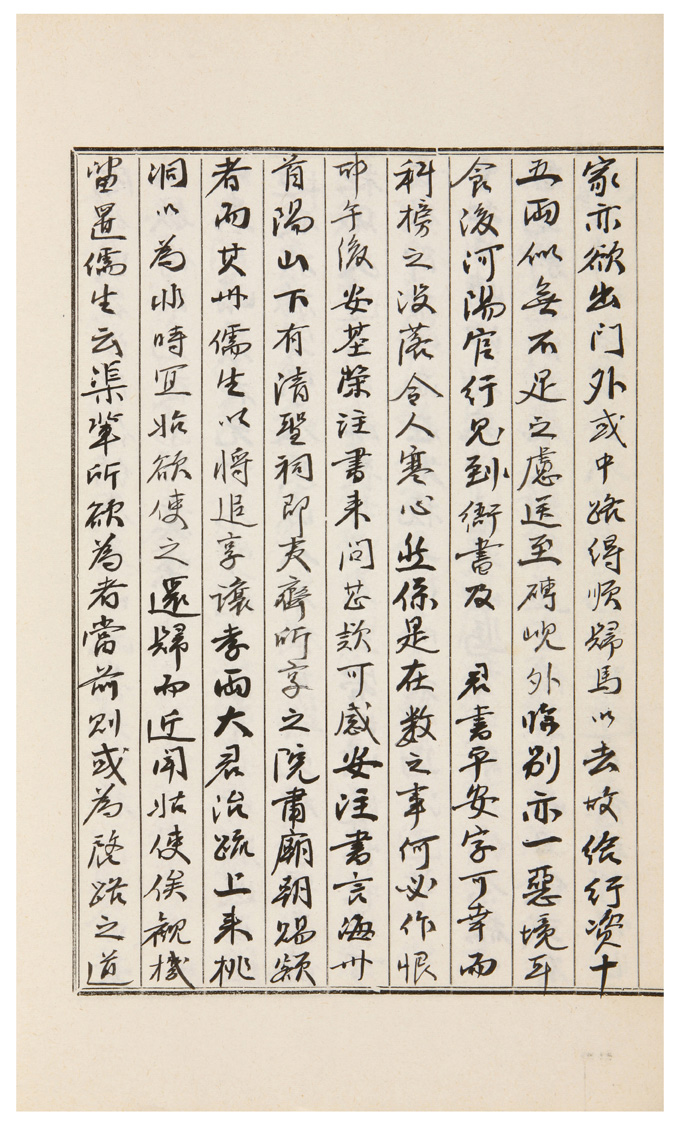 家亦欲出门外或中路得順歸馬以去故給行資十
五兩似無不足之慮送至磚峴外臨別亦一惡境耳
食後河陽官行見到衙書及 君書平安字可幸而
科榜之沒落令人寒心然係是在數之事何必作恨
即午後安基榮注書来問甚款可感安注書言海州
首陽山下有清聖祠即夷齊所享之院肅廟朝賜額
者而其州儒生以將追享讓孝兩大君治疏上来桃
洞以為非時宜姑欲使之還歸而近聞姑使俟觀機
留置儒生云渠輩所欲為者當前則或為啓路之道